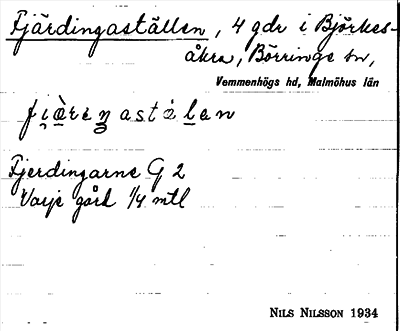 Fjärdingaställen, 4 gdr i Björkes-
åkra, Börringe sn,
Vemmenhögs hd, Malmöhus län
Fjerdingarne G 2
Varje gård 1/4 mtl
NILS NILSSON 1934